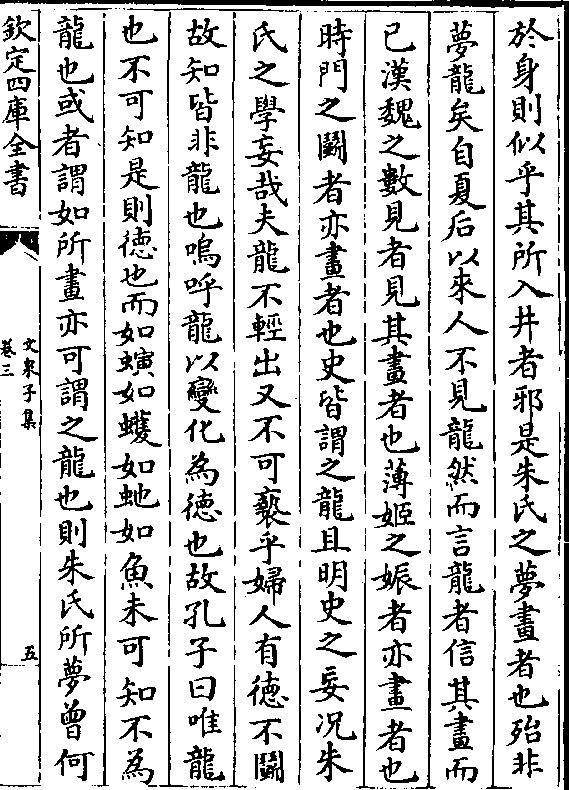 於身則似乎其所入井者邪是朱氏之夢畫者也殆非
夢龍矣自夏后以來人不見龍然而言龍者信其畫而
已漢魏之數見者見其畫者也薄姬之娠者亦畫者也
時門之鬭者亦畫者也史皆謂之龍且明史之妄况朱
氏之學妄哉夫龍不輕出又不可褻乎婦人有徳不鬭
故知皆非龍也嗚呼龍以變化為徳也故孔子曰唯龍
也不可知是則徳也而如螾如蠖如虵如魚未可知不為
龍也或者謂如所畫亦可謂之龍也則朱氏所夢曾何
欽定四庫全書
文泉子集
卷三
五